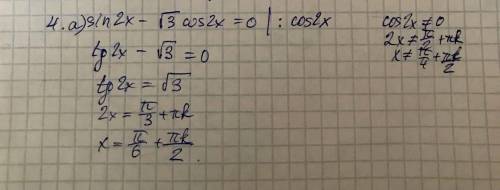 4. а) sin2x - √3 cos2x = 0 | : cos2x
tg2x - √3 = 0
tg2x = √3
2x = π/3 + πk
x = π/6 + πk/2.
cos2x ≠ 0
2x ≠ π/2 + πk
x ≠ π/4 + πk/2